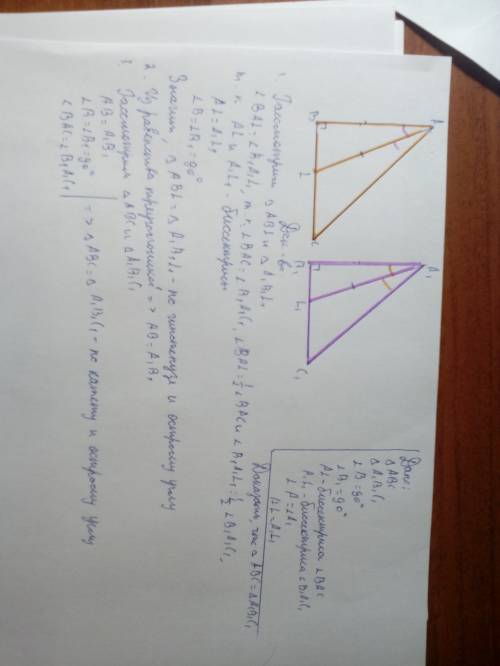 Дано:
△ABC
△A₁B₁C₁
∠B=90°
∠B₁=90°
AL-биссектриса ∠BAC
A₁L₁-биссектриса ∠B₁A₁C₁
∠A=∠A₁
AL=A₁L₁
Доказать, что △ABC=△A₁B₁C₁
A
B
L
C
A₁
B₁
L₁
C₁
Док-во:
1. Рассмотрим △ABL и △A₁B₁L₁
∠BAL=∠B₁A₁L₁, т.к. ∠BAC=∠B₁A₁C₁, ∠BAL=½∠BAC и ∠B₁A₁L₁=½∠B₁A₁C₁,
т.к. AL и A₁L₁-биссектрисы
AL=A₁L₁
∠B=∠B₁=90°
Значит, △ABL=△A₁B₁L₁-по гипотенузе и острому углу
2. Из равенства треугольников => AB=A₁B₁
3. Рассмотрим △ABC и △A₁B₁C₁
AB=A₁B₁
∠B=∠B₁=90° => △ABC=△A₁B₁C₁-по катету и острому углу
∠BAC=∠B₁A₁C₁